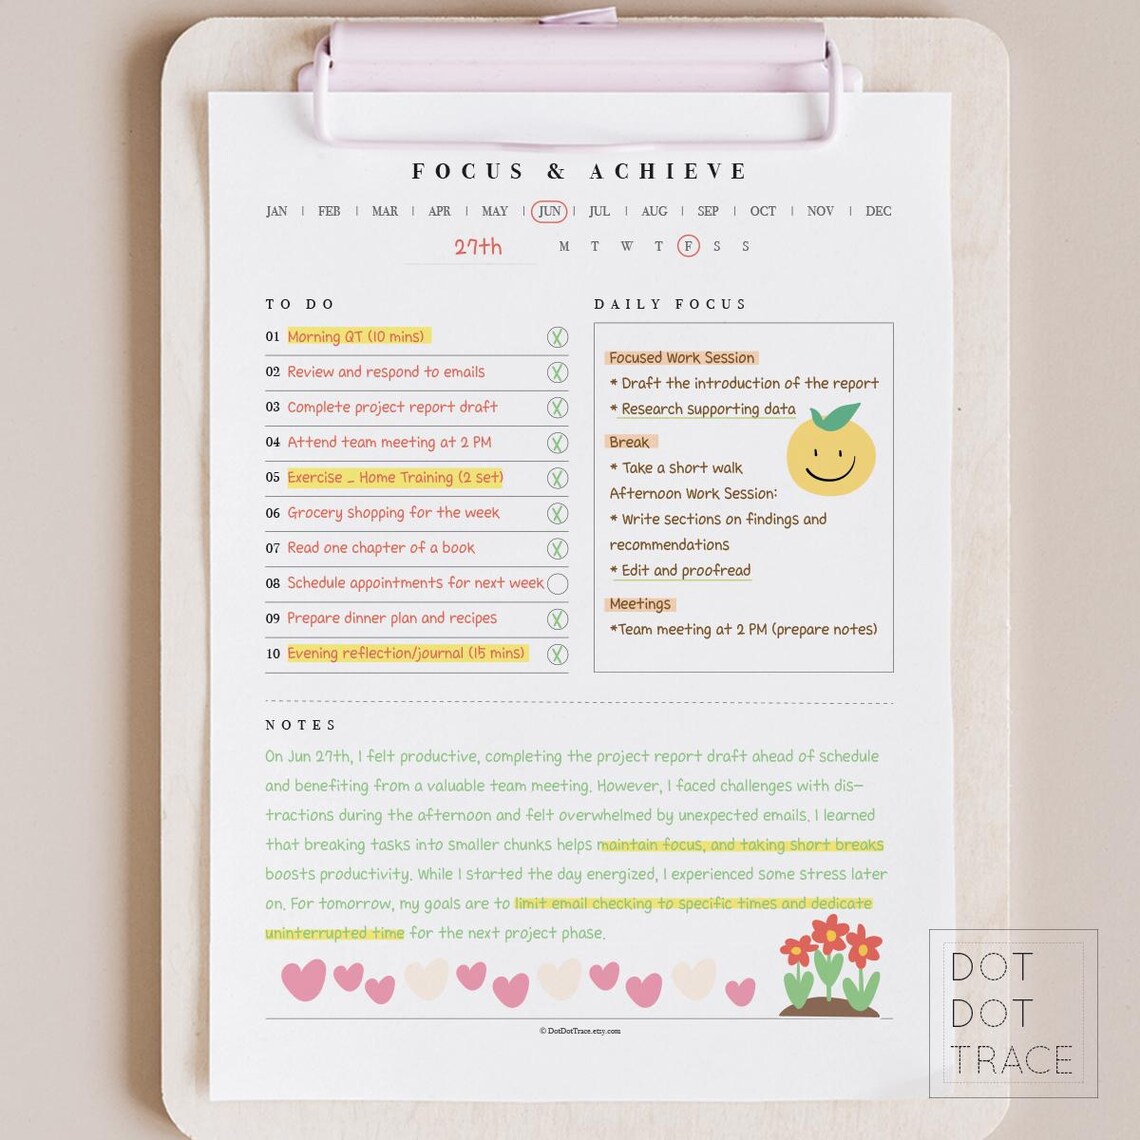 FOCUS & ACHIEVE
JAN | FEB | MAR | APR | MAY | JUN | JUL | AUG | SEP | OCT | NOV | DEC
27th M T W T F S S
TO DO
01 Morning QT (10 mins) X
02 Review and respond to emails X
03 Complete project report draft X
04 Attend team meeting at 2 PM X
05 Exercise _ Home Training (2 set) X
06 Grocery shopping for the week X
07 Read one chapter of a book X
08 Schedule appointments for next week
09 Prepare dinner plan and recipes X
10 Evening reflection/journal (15 mins) X
DAILY FOCUS
Focused Work Session
* Draft the introduction of the report
* Research supporting data
Break
* Take a short walk
Afternoon Work Session:
* Write sections on findings and
recommendations
* Edit and proofread
Meetings
*Team meeting at 2 PM (prepare notes)
NOTES
On Jun 27th, I felt productive, completing the project report draft ahead of schedule
and benefiting from a valuable team meeting. However, I faced challenges with dis-
tractions during the afternoon and felt overwhelmed by unexpected emails. I learned
that breaking tasks into smaller chunks helps maintain focus, and taking short breaks
boosts productivity. While I started the day energized, I experienced some stress later
on. For tomorrow, my goals are to limit email checking to specific times and dedicate
uninterrupted time for the next project phase.
© DotDotTrace.etsy.com
DOT
DOT
TRACE